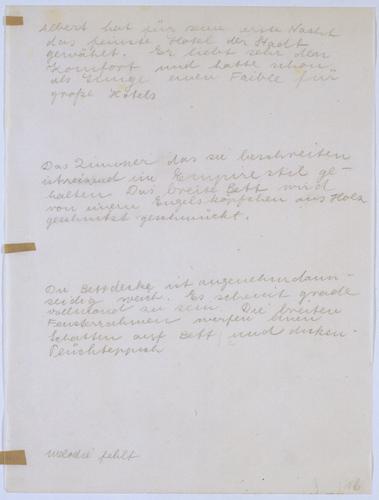 Albert hat für seine erste Nacht
das feinste Hotel der Stadt
gewählt. Er liebt sehr den
Komfort und hatte schon
als Junge einen Faible für
große Hotels
Das Zimmer das sie beschreiten
ist reizend im Empirestil ge-
halten. Das breite Bett wird
von einem Engelsköpfchen aus Holz
geschnitzt geschmückt.
Die Bettdecke ist angenehm daun-
seidig weich. Es scheint grade
Vollmond zu sein. Die breiten
Fensterrahmen werfen einen
Schatten auf Bett und dicken
Plüschteppich
Melodie fehlt
16